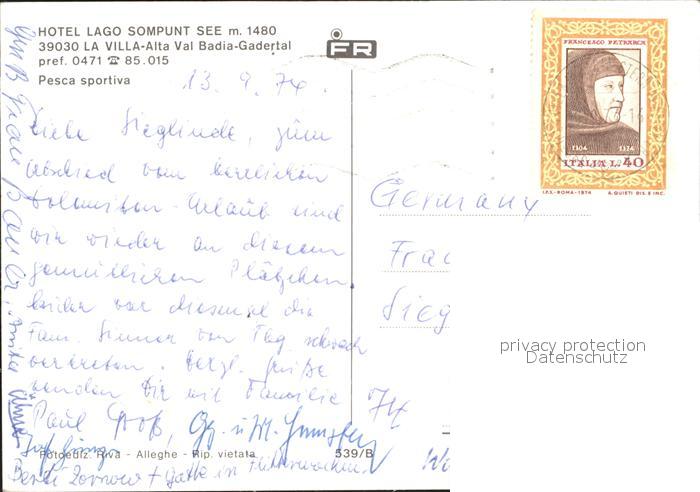 HOTEL LAGO SOMPUNT SEE m. 1480
39030 LA VILLA-Alta Val Badia-Gadertal
pref. 0471 ☎ 85.015
Pesca sportiva
FR
13. 9. 74.
Liebe Sieglinde, zum
Abschied vom herrlichen
Dolomiten-Urlaub sind
wir wieder an diesem
gemütlichen Plätzchen.
Leider war diesmal die
Fam. von Tag schwach
vertreten. Herzl. Grüße
senden Dir mit Familie
Paul Groß,
Fotoediz. Riva - Alleghe - Rip. vietata
539/B
+ Gatte in Flitterwochen
Frau Bauer,
FRANCESCO PETRARCA
1304 1374
ITALIA L. 40
I.P.S.-ROMA-1974 A. QUIETI DIS. E INC.
Germany
Frau
Sieg
74
privacy protection
Datenschutz